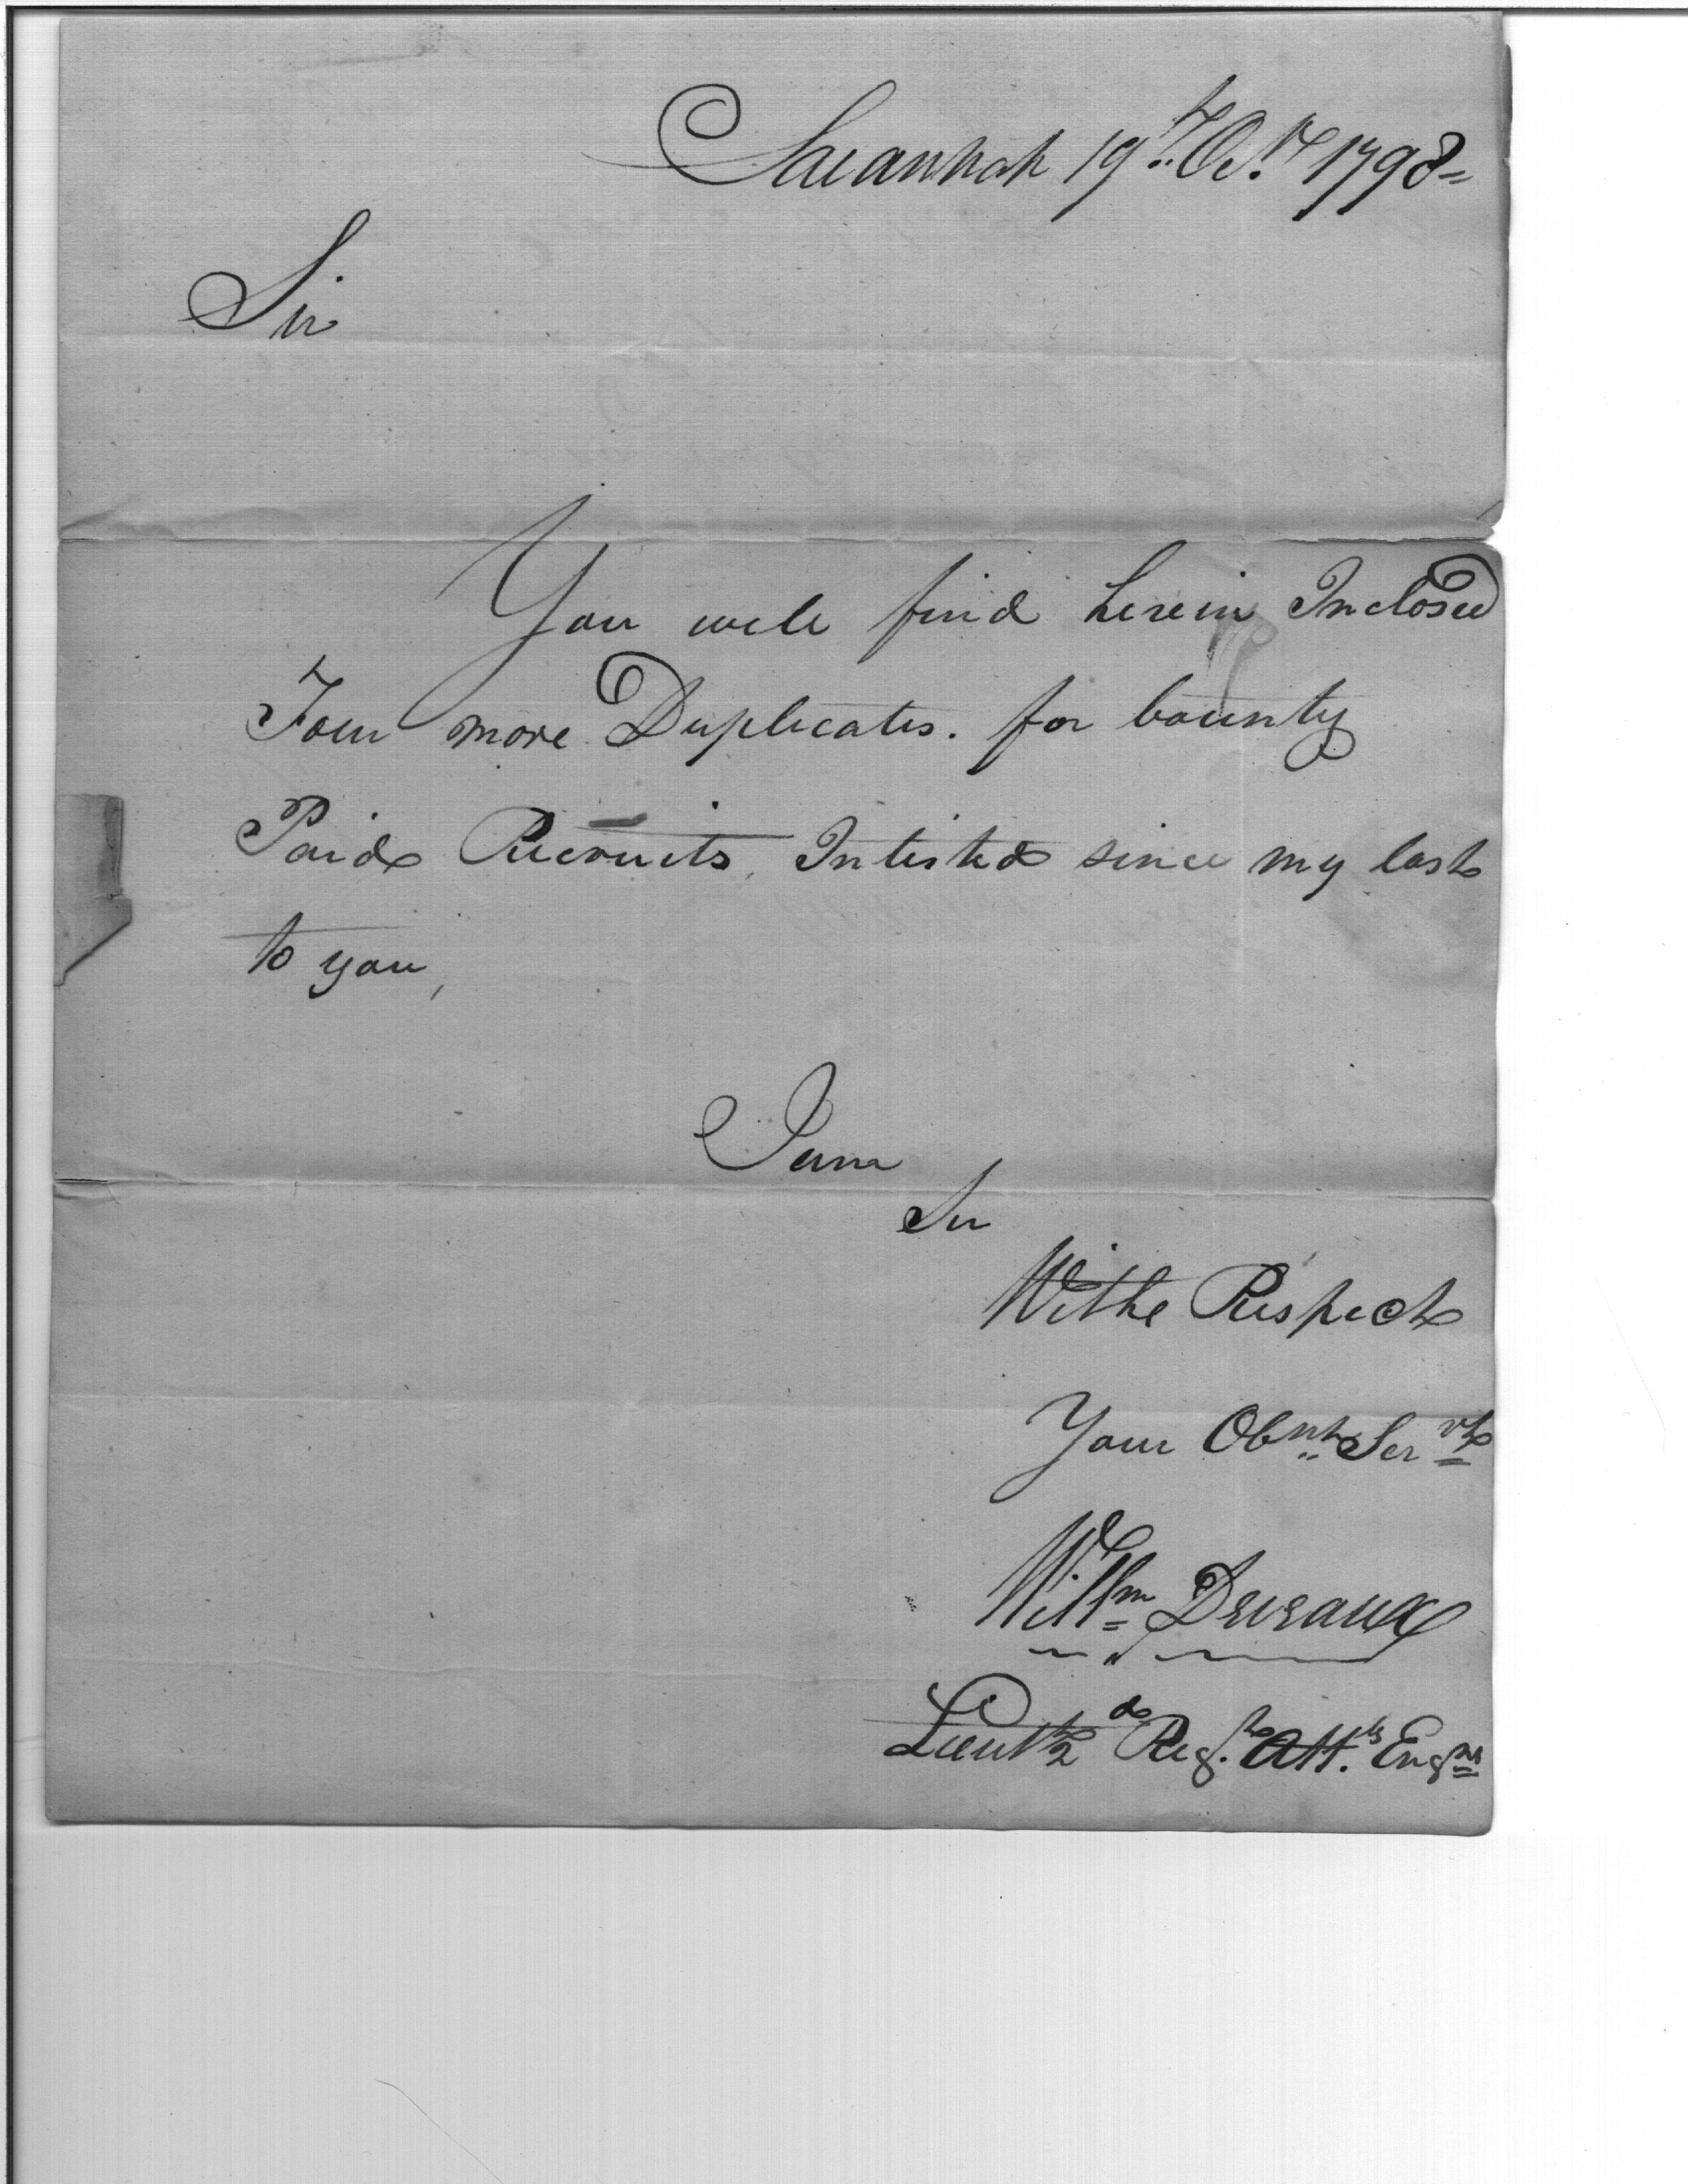 Savannah 19th Oct 1798
Sir
You will find herein Inclosed
Four more Duplicates. for bounty
Paid Recruits Intisted since my last
to you,
I am
Sir
Withe Respect
Your Obnt Servt
Willm Deveaux
Lieut 2d Regt Atts Engrs